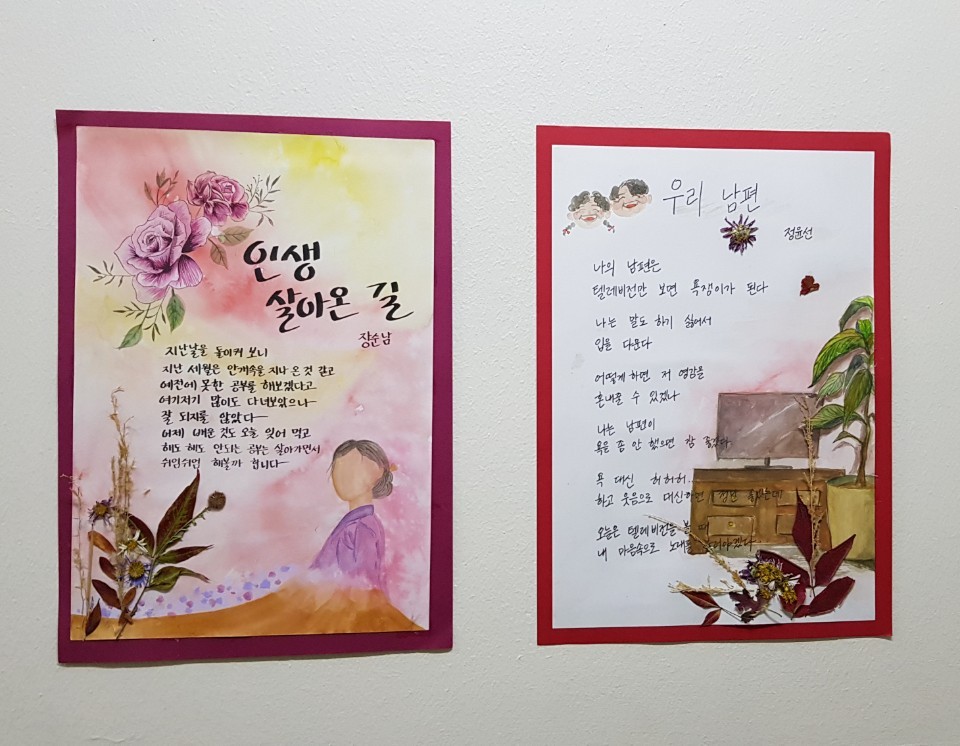 인생
살아온 길
장순남
지난날을 돌이켜 보니
지난 세월은 안개속을 지나 온 것 같고
예전에 못한 공부를 해보겠다고
여기저기 많이도 다녀보았으나
잘 되지를 않았다
어제 배운 것도 오늘 잊어 먹고
해도 해도 안되는 공부는 살아가면서
쉬엄쉬엄 해볼까 합니다
우리 남편
정윤선
나의 남편은
텔레비전만 보면 욕쟁이가 된다
나는 말도 하기 싫어서
입을 다문다
어떻게 하면 저 영감을
혼내줄 수 있겠나
나는 남편이
욕을 좀 안 했으면 참 좋겠다
욕 대신 허허허...
하고 웃음으로 대신하면
오늘은 텔레비전을 볼 때
내 마음속으로 노래를